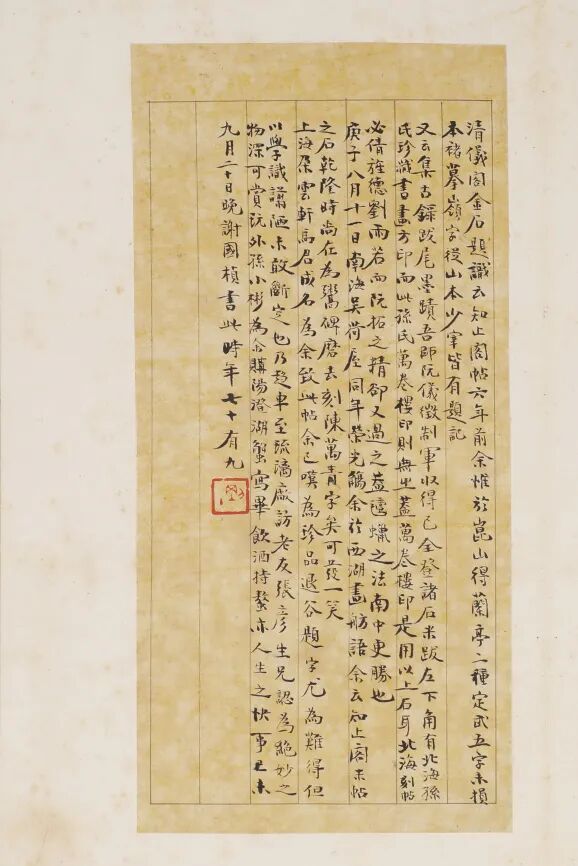 清儀閣金石題識云知止閣帖六年前余惟於崑山得蘭亭二種定武五字未損
本褚摹嶺字從山本少宰皆有題記
又云集古錄跋尾墨蹟吾師阮儀徵制軍收得已全登諸石米跋左下角有北海孫
氏珍藏書畫方印而此孫氏萬卷樓印則無之蓋萬卷樓印是用以上石耳北海刻帖
必倩旌德劉雨若而阮拓之精卻又過之蓋氊蠟之法南中更勝也
庚子八月十一日南海吳荷屋同年榮光觴余於西湖畫舫語余云知止閣米帖
之石乾隆時尚在為鬻碑磨去刻陳萬青字矣可發一笑
上海朵雲軒馬君成名為余致此帖余已嘆為珍品退谷題字尤為難得但
以學識譾陋未敢斷定也乃趨車至琉璃廠訪老友張彦生兄認為絕妙之
物深可賞玩外孫小彬為余購陽澄湖蟹寫畢飲酒持螯亦人生之快事己未
九月二十日晚謝國楨書此時年七十有九